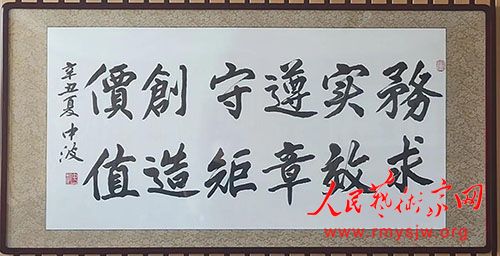 務求
实效
遵章
守矩
創造
價值
辛丑夏中波
人民藝術家网
www.rmysjw.org